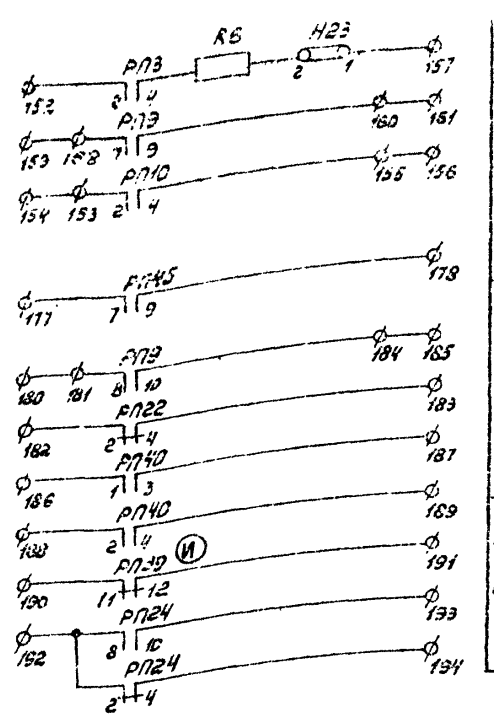 R6 Н23
РП3 2 1 157
152 4
РП9 160 161
153 7 9
РП10 155 156
154 153 2 4
РП45 178
177 7 9
РП9 184 185
180 181 8 10
РП22 183
182 2 4
РП40 187
186 1 3
РП40 189
188 2 4 И
191
190 11 12
РП24 193
192 8 10
РП24 194
2 4